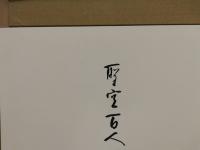 聖空百人